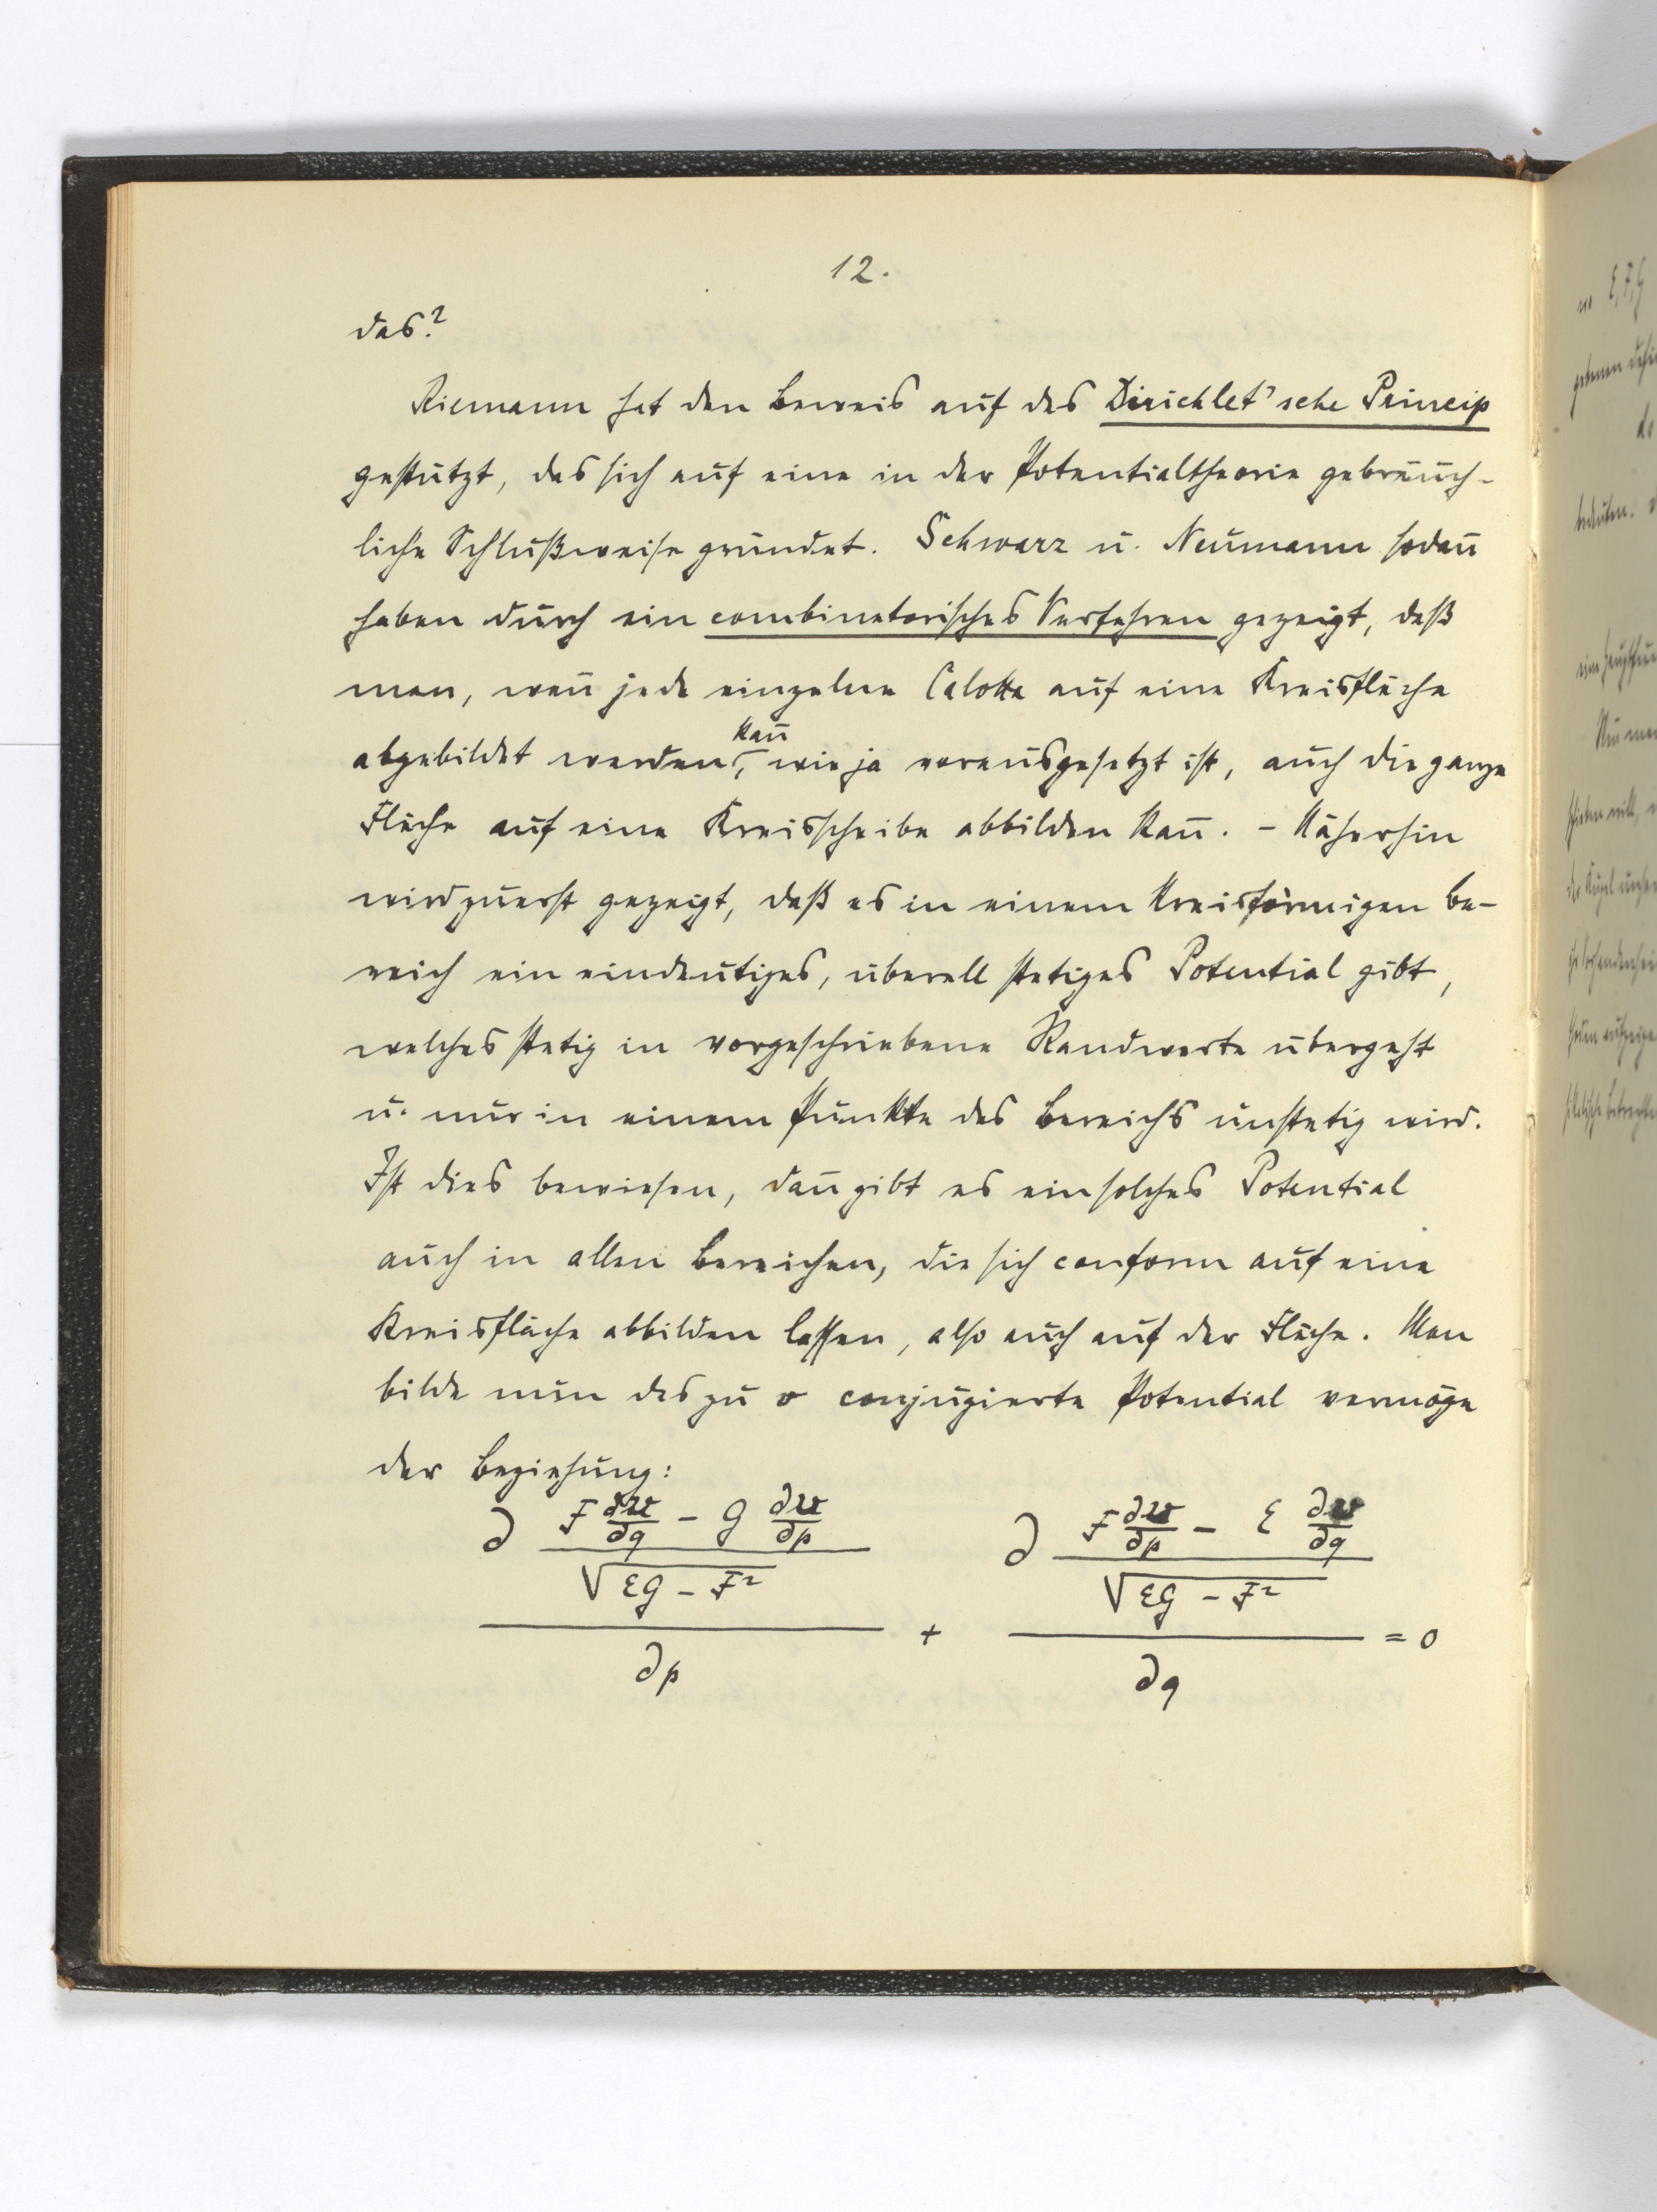 12.
das?
Riemann hat den Beweis auf das Dirichlet'sche Princip
gestützt, das sich auf eine in der Potentialtheorie gebräuch-
liche Schlußweise gründet. Schwarz u. Neumann sodan̄
haben durch ein combinatorisches Verfahren gezeigt, daß
man, wen̄ jede einzelne Calotte auf eine Kreisfläche
abgebildet werden kan̄, wie ja vorausgesetzt ist, auch die ganze
Fläche auf eine Kreisscheibe abbilden kan̄. – Näherhin
wird zuerst gezeigt, daß es in einem kreisförmigen Be-
reich ein eindeutiges, überall stetiges Potential gibt,
welches stetig in vorgeschriebene Randwerte übergeht
u. nur in einem Punkte des Bereichs unstetig wird.
Ist dies bewiesen, dan̄ gibt es ein solches Potential
auch in allen Bereichen, die sich conform auf eine
Kreisfläche abbilden lassen, also auch auf der Fläche. Man
bilde nun das zu v conjugierte Potential vermöge
der Beziehung:
∂ (F ∂v/∂q – G ∂v/∂p)/√(EG – F²) / ∂p + ∂ (F ∂v/∂p – E ∂v/∂q)/√(EG – F²) / ∂q = 0